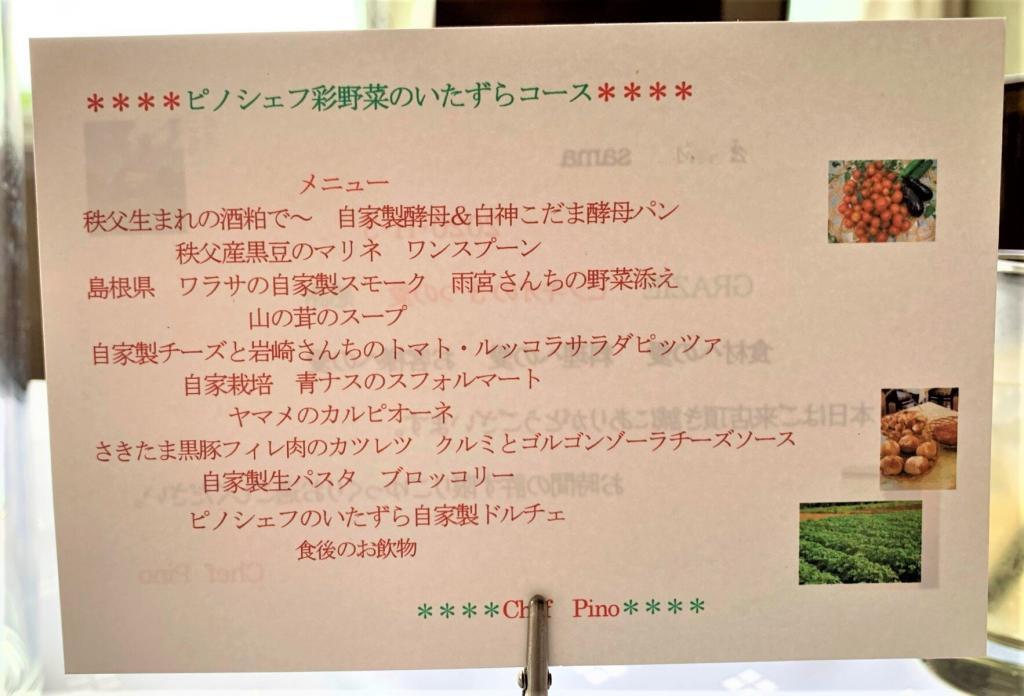 ****ピノシェフ彩野菜のいたずらコース****
メニュー
秩父生まれの酒粕で～ 自家製酵母&白神こだま酵母パン
秩父産黒豆のマリネ ワンスプーン
島根県 ワラサの自家製スモーク 雨宮さんちの野菜添え
山の茸のスープ
自家製チーズと岩崎さんちのトマト・ルッコラサラダピッツァ
自家栽培 青ナスのスフォルマート
ヤマメのカルピオーネ
さきたま黒豚フィレ肉のカツレツ クルミとゴルゴンゾーラチーズソース
自家製生パスタ ブロッコリー
ピノシェフのいたずら自家製ドルチェ
食後のお飲物
****Chef Pino****